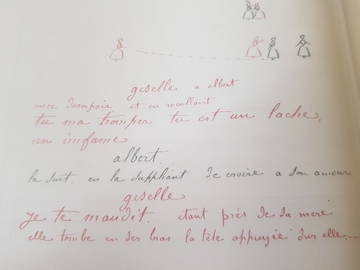 giselle a albert
mere et en recullant
tu ma tromper tu est un lache,
un imfame
albert
la suit en la suppliant de croire a son amour
giselle
je te maudit étant près de sa mere
elle tombe en ses bras la tête appuyée sur elle